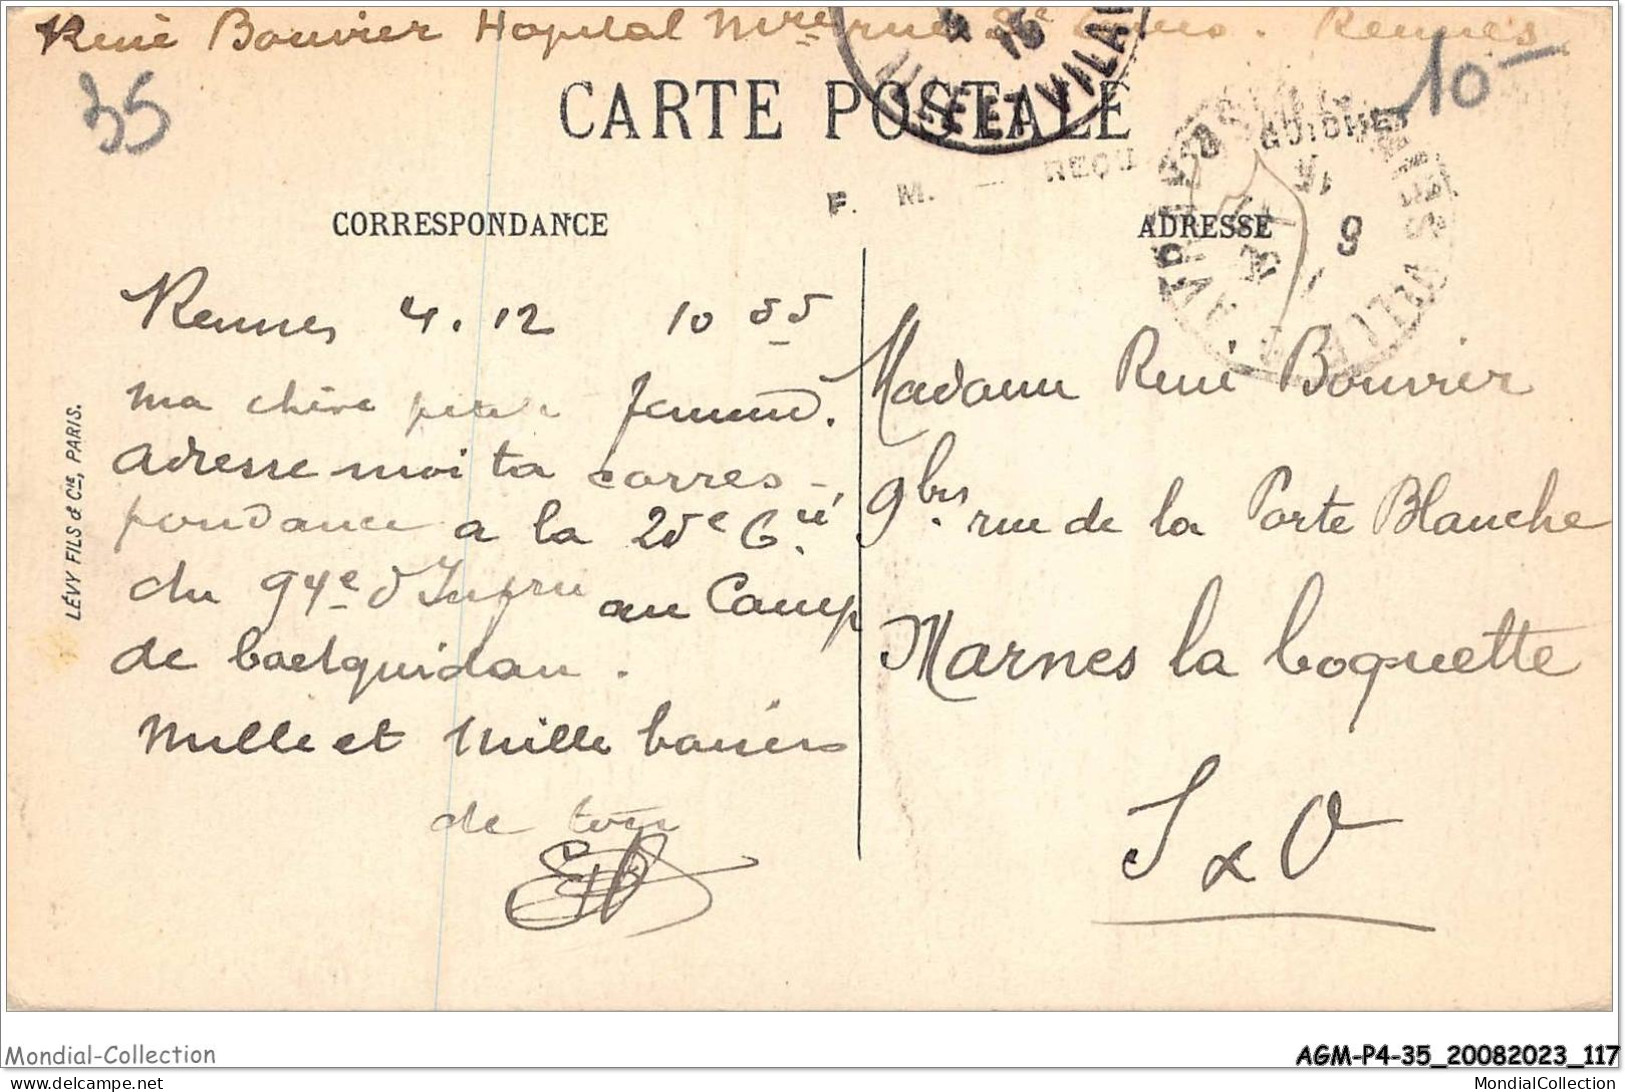 René Bouvier Hopital Mre rue Rennes
35
10
CARTE POSTALE
ILLE ET VILAINE
GUICHET
F. M. — REÇU
CORRESPONDANCE
ADRESSE
Rennes 4.12 10 55
ma chère petite femme.
adresse moi ta corres-
pondance a la 25e Cie
du 94e d'Infrie au Camp
de Coetquidan.
Mille et Mille baisers
de ton
Madame René Bouvier
9bis rue de la Porte Blanche
Marnes la Coquette
S & O
LÉVY FILS & Cie, PARIS.
Mondial-Collection
AGM-P4-35_20082023_117
www.delcampe.net
MondialCollection